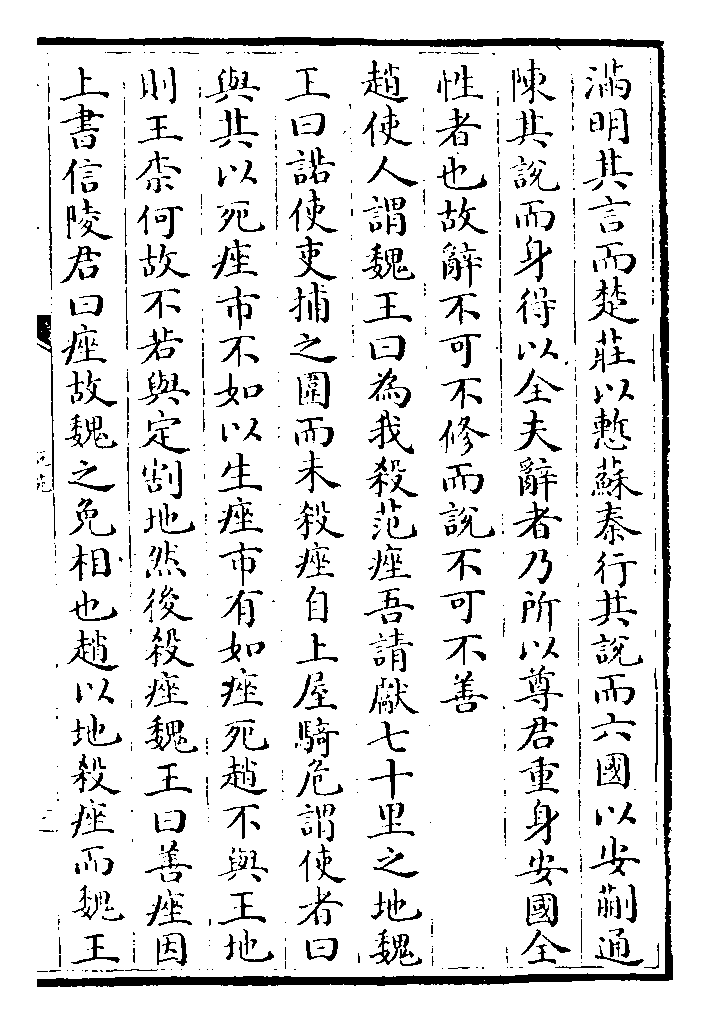 滿明其言而楚莊以慙蘇秦行其說而六國以安蒯通
陳其說而身得以全夫辭者乃所以尊君重身安國全
性者也故辭不可不修而說不可不善
趙使人謂魏王曰為我殺范痤吾請獻七十里之地魏
王曰諾使吏捕之圍而未殺痤自上屋騎危謂使者曰
與其以死痤市不如以生痤市有如痤死趙不與王地
則王柰何故不若與定割地然後殺痤魏王曰善痤因
上書信陵君曰痤故魏之免相也趙以地殺痤而魏王